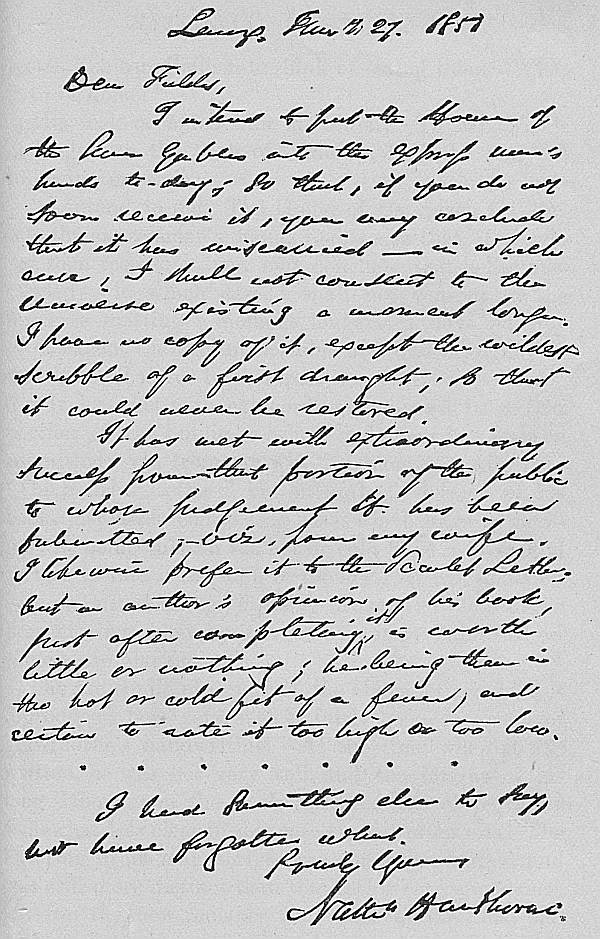 Lenox, Jany 27. 1851
Dear Fields,
I intend to put the House of
the Seven Gables into the express man's
hands to-day; so that, if you do not
soon receive it, you may conclude
that it has miscarried — in which
case, I shall not consent to the
universe existing a moment longer.
I have no copy of it, except the wildest
scribble of a first draught; so that
it could never be restored.
It has met with extraordinary
success from that portion of the public
to whose judgement it has been
submitted; — viz. from my wife.
I likewise prefer it to the Scarlet Letter;
but an author's opinion of his book,
just after completing it, is worth
little or nothing; he being then in
the hot or cold fit of a fever, and
certain to rate it too high or too low.
. . . . . . .
I had something else to say,
but have forgotten what.
Truly Yours
Nathl Hawthorne.